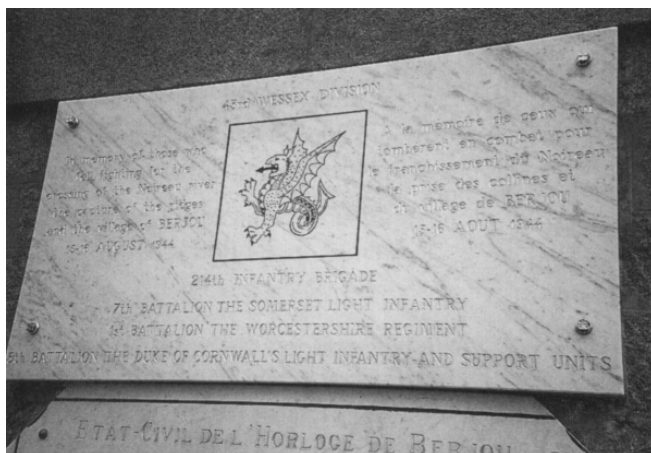 43rd WESSEX DIVISION
In memory of those who
fell fighting for the
crossing of the Noireau river
the capture of the ridges
and the village of BERJOU
15-16 AUGUST 1944
A la mémoire de ceux qui
tombèrent en combat pour
le franchissement du Noireau
la prise des collines et
du village de BERJOU
15-16 AOUT 1944
214th INFANTRY BRIGADE
7th BATTALION THE SOMERSET LIGHT INFANTRY
1st BATTALION THE WORCESTERSHIRE REGIMENT
5th BATTALION THE DUKE OF CORNWALL'S LIGHT INFANTRY AND SUPPORT UNITS
ETAT-CIVIL DE L'HORLOGE DE BERJOU